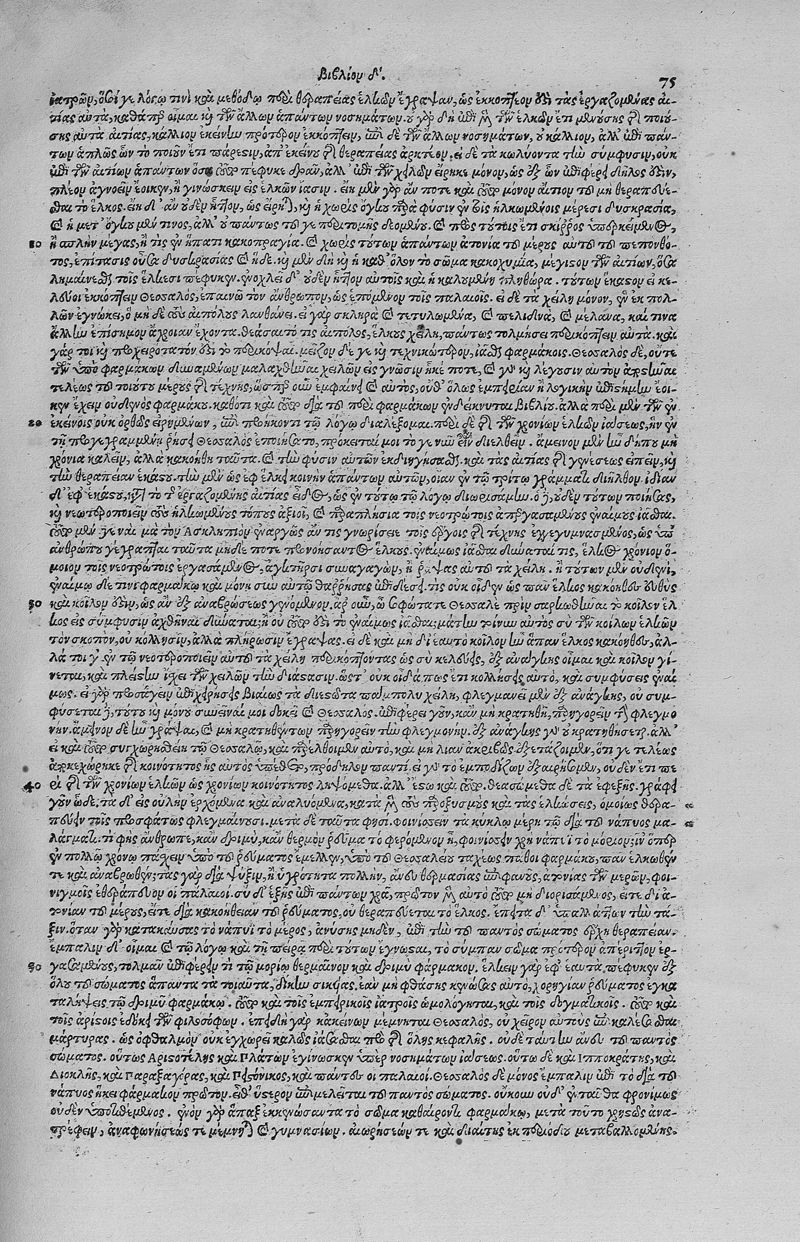 Βιβλίον δ'.
75
ἰατρῶν, ὅσοι γε λόγῳ τινὶ καὶ μεθόδῳ περὶ θεραπείας ἑλκῶν ἔγραψαν, ὡς ἐκκοπτέον ἐστὶ τὰς ἐργαζομένας αἰ-
τίας αὐτά, καθάπερ οἶμαι καὶ τῶν ἄλλων ἁπάντων νοσημάτων. οὐ γὰρ δὴ ἐπὶ μὲν τῶν ἑλκῶν ἔτι μενούσης τῆς ποιού-
σης αὐτὰ αἰτίας, κάλλιον ἐκείνην πρότερον ἐκκόπτειν, ἐπὶ δὲ τῶν ἄλλων νοσημάτων, οὐ κάλλιον, ἀλλ' ἐπὶ πάν-
των ἁπλῶς ὧν τὸ ποιοῦν ἔτι πάρεστιν, ἀπ' ἐκείνου τῆς θεραπείας ἀρκτέον. εἰ δὲ τὰ κωλύοντα τὴν σύμφυσιν, οὐκ
ἐπὶ τῶν αἰτίων ἁπάντων ὅσα τοῦτο πέφυκε δρᾶν, ἀλλ' ἐπὶ τῶν χειλῶν εἴρηκε μόνον, ὡς ἐξ ὧν ἐπιφέρει δῆλός ἐστιν,
πλέον ἀγνοεῖν ἔοικεν, ἢ γινώσκειν εἰς ἑλκῶν ἴασιν. εἴη μὲν γὰρ ἄν ποτε καὶ τοῦτο μόνον αἴτιον τοῦ μὴ θεραπεύε-
σθαι τὸ ἕλκος. εἴη δι' ἂν οὐδὲν ἧττον, ὡς εἴρηται, καὶ ἡ χωρὶς ὄγκου παρὰ φύσιν ἐν τοῖς ἡλκωμένοις μέρεσι δυσκρασία,
καὶ ἡ μετ' ὄγκου μέν τινος, ἀλλ' οὐ πάντως τοῦ γε περιτομῆς δεομένου. καὶ πρὸς τούτοις ἔτι σκίρρος ὑποκείμενος,
10 ἢ σπλὴν μέγας, ἤ τις ἐν ἥπατι κακοπραγία. καὶ χωρὶς τούτων ἁπάντων ἀτονία τοῦ μέρους αὐτοῦ τοῦ πεπονθό-
τος, ἐπίτασις οὖσα δυσκρασίας καὶ ἥδε. καὶ μὲν δὴ καὶ ἡ καθ' ὅλον τὸ σῶμα κακοχυμία, μέγιστον τῶν αἰτίων, ὅσα
λημαίνεσθαι τοῖς ἕλκεσι πέφυκεν. ἐνοχλεῖ δ' οὐδὲν ἧττον αὐτοῖς καὶ ἡ καλουμένη πληθώρα. τούτων ἕκαστον εἰ κε-
λεύοι ἐκκόπτειν Θεσσαλός, ἐπαινῶ τὸν ἄνθρωπον, ὡς ἑπόμενον τοῖς παλαιοῖς. εἰ δὲ τὰ χείλη μόνον, ἓν ἐκ πολ-
λῶν ἐγνώκει, ὃ μηδὲ τοὺς αἰπόλους λανθάνει. εἰ γὰρ σκληρὰ καὶ τετυλωμένα, καὶ πελιδνά, καὶ μέλανα, καί τινα
ἄλλην ἐπίσημον ἄχροιαν ἔχοντα θεάσαιτό τις αἰπόλος, ἕλκους χείλη, πάντως τολμήσει περικόπτειν αὐτά. καὶ
γάρ τοι καὶ προχειρότατόν ἐστι τὸ περικόψαι. μεῖζον δέ γε καὶ τεχνικώτερον, ἰᾶσθαι φαρμάκοις. Θεσσαλὸς δέ, οὔτε
τῶν ὑπὸ φαρμάκων δυναμένων μαλαχθῆναι χειλῶν εἰς γνῶσιν ἧκέ ποτε, καὶ γ' ἡ λέγουσιν αὐτὸν ἀρχῆναι
τελέως τοῦ τοιούτου μέρους τῆς τέχνης, ὥσπερ οὖν ἐμφαίνει καὶ αὐτός, οὐθ' ὅλως ἐμπειρίαν ἢ λογικὴν ἐπιστήμην ἔοι-
κεν ἔχειν οὐδενὸς φαρμάκου. καθότι καὶ τοῦτο διὰ τοῦ περὶ φαρμάκων ἐνδείκνυται βιβλίου. ἀλλὰ περὶ μὲν τῶν ἐν
20 ἐκείνοις οὐκ ὀρθῶς εἰρημένων, ἐπὶ προήκοντι τῷ λόγῳ διαλέξομαι. περὶ δὲ τῆς χρονίων ἑλκῶν ἰάσεως, ἣν ἐν
τῇ προγεγραμμένῃ ῥήσει Θεσσαλὸς ἐποιήσατο, πρόκειταί μοι τό γε νῦν εἶναι διελθεῖν. ἄμεινον μὲν ἦν δήπου μὴ
χρόνια καλεῖν, ἀλλὰ κακοήθη ταῦτα. καὶ τὴν φύσιν αὐτῶν ἐκδιηγήσασθαι. καὶ τὰς αἰτίας τῆς γενέσεως εἰπεῖν, καὶ
τὴν θεραπείαν ἑκάστου. τὴν μὲν ὡς ἐφ' ἕλκει κοινὴν ἁπάντων αὐτῶν, οἵαν ἐν τῷ τρίτῳ γράμματι διῆλθον. ἰδίαν
δ' ἐφ' ἑκάστου, κατὰ τὸ τῆς ἐργαζομένης αἰτίας εἶδος, ὡς ἐν τούτῳ τῷ λόγῳ διωρισάμην. ὁ δὲ, οὐδὲν τούτων ποιήσας,
καὶ νεωτεροποιεῖν τοὺς ἡλκωμένους τόπους ἀξιοῖ, καὶ παραπλήσια τοῖς νεοτρώτοις ἀπεργασαμένους ἐναίμους ἰᾶσθαι.
τοῦτο μέν γε ναὶ μὰ τὸν Ἀσκληπιὸν ἐναργῶς ἄν τις γνωρίσειε τοῖς ἔργοις τῆς τέχνης ἐγγεγυμνασμένος, ὡς ὑπὸ
ἀνθρώπου γέγραπται ταῦτα μηδέ ποτε προνοήσαντος ἕλκους. ἐναίμως ἰᾶσθαι δύναταί τις, ἕλκος χρόνιον ὅ-
μοιον τοῖς νεοτρώτοις ἐργασάμενος, ἀγκτῆρσι συναγαγών, ἢ ῥάψας αὐτοῦ τὰ χείλη. ἢ τούτων μὲν οὐδενί,
ἐναίμῳ δέ τινι φαρμάκῳ καὶ μόνῃ σὺν αὐτῷ θαρρήσας ἐπιδέσει. τίς οὐκ οἶδεν ὡς πᾶν ἕλκος κακόηθες εὐθὺς
30 καὶ κοῖλόν ἐστιν, ὡς ἂν ἐξ ἀναβρώσεως γενόμενον. ἆρ' οὖν, ὦ σοφώτατε Θεσσαλὲ πρὶν σαρκωθῆναι τὸ κοῖλον ἕλ-
κος εἰς σύμφυσιν ἀχθῆναι δύναται; ἢ οὐ τοῦτό ἐστι τὸ ἐναίμως ἰᾶσθαι; μάτην τοίνυν αὐτὸς σὺ τῶν κοίλων ἑλκῶν
τὸν σκοπόν, οὐ κόλλησιν, ἀλλὰ πλήρωσιν ἔγραψας. εἰ δὲ καὶ μὴ δι' ἑαυτὸ κοῖλον ἦν ἅπαν ἕλκος κακόηθες, ἀλ-
λά τοί γ' ἐν τῷ νεοτεροποιεῖν αὐτοῦ τὰ χείλη περικόπτοντας ὡς σὺ κελεύεις, ἐξ ἀνάγκης οἶμαι καὶ κοῖλον γί-
νεται, καὶ πλείστην ἴσχει τῶν χειλῶν τὴν διάστασιν. ὥστ' οὐκ οἶδ' ὅπως ἔτι κολλήσεις αὐτό, καὶ συμφύσεις ἐναί
μως. εἰ γὰρ προσάγειν ἐπιχειρήσεις βιαίως τὰ διεστῶτα πάμπολυ χείλη, φλεγμανεῖ μὲν ἐξ ἀνάγκης, οὐ συμ-
φύσεται δέ, τοῦτο καὶ μόνου συνεῖναί μοι δοκεῖ καὶ Θεσσαλός. ἐπιφέρει γοῦν, κἂν μὴ κρατηθῇ, παρηγορεῖν τὴν φλεγμο
νήν. ἄμεινον δὲ ἦν γράψαι, καὶ μὴ κρατηθέντων παρηγορεῖν τὴν φλεγμονήν. ἐξ ἀνάγκης γ' οὐ κρατηθήσεται. ἀλλ'
εἰ καὶ τοῦτο συγχωρηθείη τῷ Θεσσαλῷ, καὶ παρέλθοιμεν αὐτό, καὶ μὴ λίαν ἀκριβῶς ἐξετάζοιμεν, ὅτι γε τελέως
ἀποκεχώρηκε τῆς κοινότητος ἧς αὐτὸς ὑπέθετο, πρόδηλον παντί. εἰ γὰρ τὸ ἐμποδίζον ἐξαιρήσομεν, οὐδὲν ἔτι πε
40 ρὶ τῆς τῶν χρονίων ἑλκῶν ὡς χρονίων κοινότητος ληψόμεθα. ἀλλ' ἔστω καὶ τοῦτο. θεασώμεθα δὲ τὰ ἐφεξῆς. γράφει
γοῦν ὧδε, τὰ δ' εἰς οὐλὴν ἐρχόμενα καὶ ἀναλυόμενα, κατὰ μὲν τοὺς παροξυσμοὺς καὶ τὰς ἑλκώσεις, ὁμοίως θερα-
πεύειν τοῖς προσφάτως φλεγμαίνουσι. μετὰ δὲ ταῦτα φησὶ, φοινίσσειν τὰ κύκλῳ μέρη τῷ διὰ τοῦ νάπυος μα-
λάγματι. τί φῂς ἄνθρωπε, κἂν δριμύ, κἂν θερμὸν ῥεῦμα τὸ φερόμενον ᾖ, φοινίσσειν χρὴ νάπυϊ τὸ μόριον; ἵν' ὅπερ
ἐν πολλῷ χρόνῳ πάσχειν ὑπὸ τοῦ ῥεύματος ἔμελλεν, ὑπὸ τοῦ Θεσσαλείου ταχέως πάθοι φαρμάκου, πᾶν ἑλκωθέν
τε καὶ ἀναβρωθέν; τὰς γὰρ διὰ ψῦξιν, ἢ ὑγρότητα πολλήν, ἄνευ θερμασίας ἐπιφανοῦς, ἀτονίας τῶν μερῶν, φοι-
νιγμοῖς ἐθεράπευον οἱ παλαιοί. σὺ δ' ἑξῆς ἐπὶ πάντων χρᾷ, πρῶτον μὲν αὐτὸ τοῦτο μὴ διορισάμενος, εἴτε δι' ἀ-
τονίαν τοῦ μέρους, εἴτε διὰ κακοήθειαν τοῦ ῥεύματος, οὐ θεραπεύεται τὸ ἕλκος. ἔπειτα δ' ὑπαλλάττων τὴν τά-
ξιν. ὅταν γὰρ κατακαύσας τὸ νάπυϊ τὸ μέρος, ἀνύσῃς μηδέν, ἐπὶ τὴν τοῦ παντὸς σώματος ἔρχῃ θεραπείαν.
ἔμπαλιν δ' οἶμαι καὶ τῷ λόγῳ καὶ τῇ πείρᾳ περὶ τούτων ἔγνωσται, τὸ σύμπαν σῶμα πρότερον ἀπέριττον ἐρ-
50 γασαμένους, τολμᾶν ἐπιφέρειν τι τῷ μορίῳ θερμαῖνον καὶ δριμὺ φάρμακον, ἕλκειν γὰρ ἐφ' ἑαυτὰ πέφυκεν ἐξ
ὅλου τοῦ σώματος ἅπαντα τὰ τοιαῦτα, δίκην σικύας, ἐὰν μὴ φθάσῃς κενώσας αὐτό, χορηγίαν ῥεύματος ἐγκα
ταλήψεις τῷ δριμῷ φαρμάκῳ. τοῦτο καὶ τοῖς ἐμπειρικοῖς ἰατροῖς ὡμολόγηται, καὶ τοῖς δογματικοῖς. τοῦτο καὶ
τοῖς ἀρίστοις ἐδόκει τῶν φιλοσόφων. ἐπειδὴ γὰρ κἀκείνων μέμνηται Θεσσαλός, οὐ χεῖρον αὐτοὺς ἐπικαλεῖσθαι
μάρτυρας. ὡς ὀφθαλμὸν οὐκ ἐγχωρεῖ καλῶς ἰάσασθαι πρὸ τῆς ὅλης κεφαλῆς. οὐδὲ ταύτην ἄνευ τοῦ παντὸς
σώματος. οὕτως Ἀριστοτέλης καὶ Πλάτων ἐγίνωσκεν ὑπὲρ νοσημάτων ἰάσεως. οὕτω δὲ καὶ Ἱπποκράτης, καὶ
Διοκλῆς, καὶ Πραξαγόρας, καὶ Πλειστόνικος, καὶ πάντες οἱ παλαιοί. Θεσσαλὸς δὲ μόνος ἔμπαλιν ἐπὶ τὸ διὰ τοῦ
νάπυος ἥκει φάρμακον πρῶτον. εἶθ' ὕστερον ἐπιμελεῖται τοῦ παντὸς σώματος. οὔκουν οὐδ' ἐνταῦθα φρονίμως
οὐδὲν ὑποτιθέμενος. ἐνὸν γὰρ ἅπαξ ἐκκενώσαντα τὸ σῶμα καθαίροντι φαρμάκῳ, μετὰ τοῦτο χρηστῶς ἀνα-
τρέφειν, ἀναφωνήσεώς τε μέμνηται καὶ γυμνασίων. αἰωρήσεών τε καὶ διαίτης ἐκ περιόδου μεταβαλλομένης.